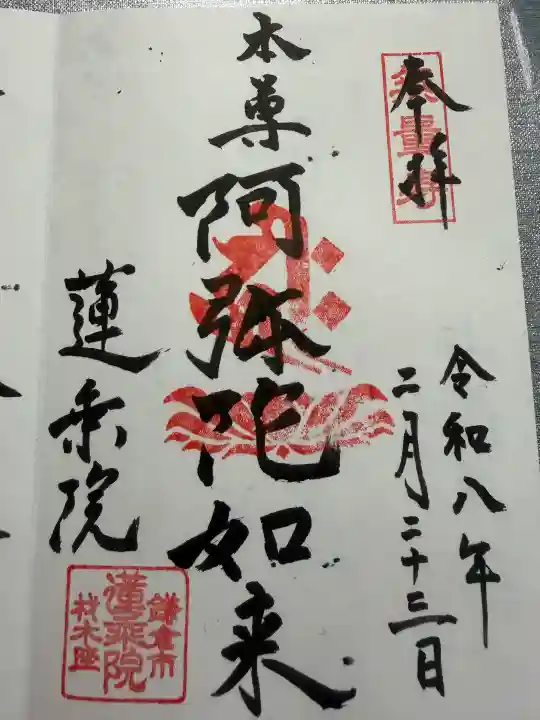 奉拝
無量寿
令和八年
二月二十三日
本尊阿弥陀如来
蓮乗院
鎌倉市
蓮乗院
材木座